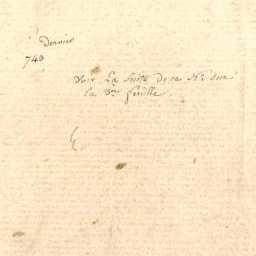 Dernier
743
Voir La suite de ce N.º sur
la 3.me feuille.